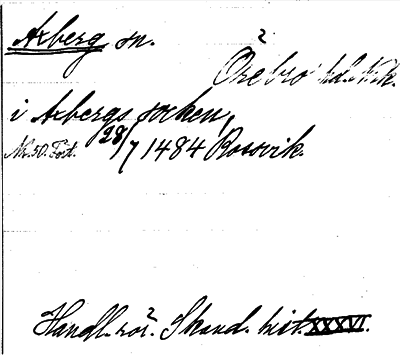 Axberg sn.
Örebro hd. Nke.
i Axbergs socken,
Nr. 50. Fort. 28/7 1484 Rossvik.
Handl. rör. Skand. hist. XXXVI.